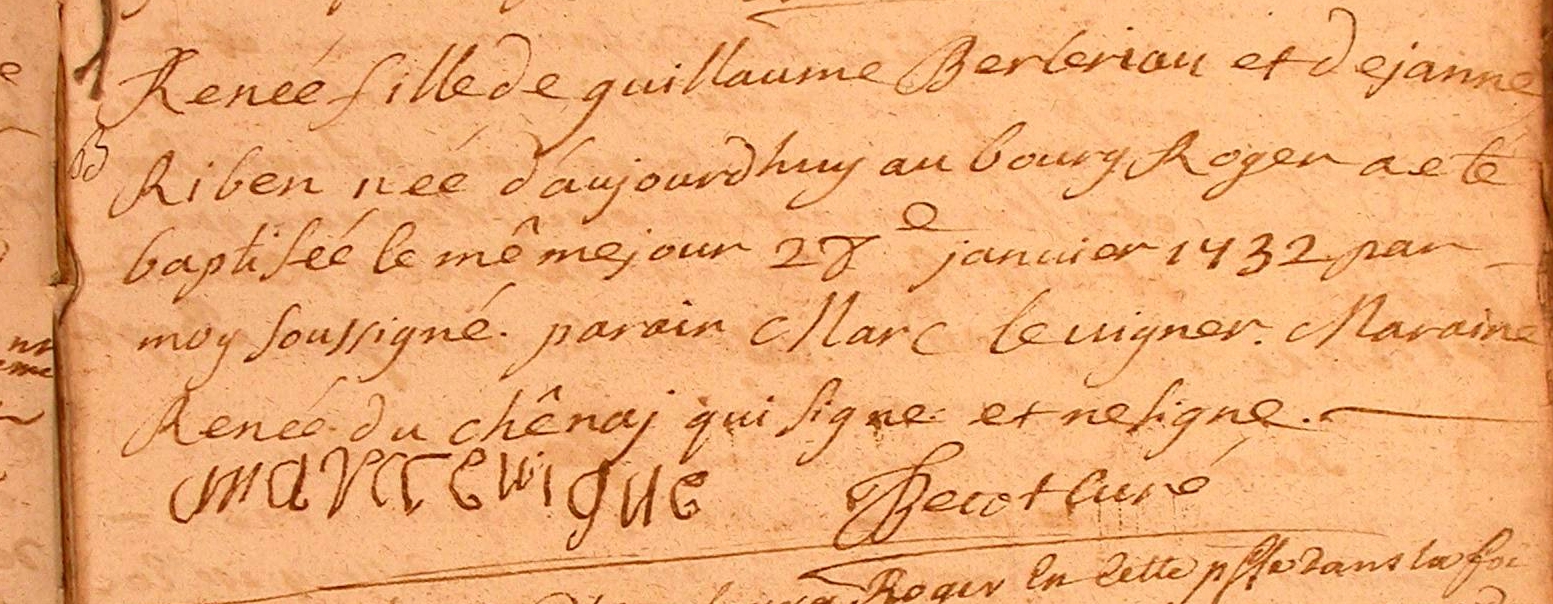 Renée fille de guillaume Berleriau et de janne
B
Riben née d'aujourdhuy au bourg Roger a eté
baptisée le même jour 28e janvier 1732 par
moy soussigné. parain Marc levigner. Maraine
Renée du chênaj qui signe et ne signe.
marc levigne Becot curé
Roger En cette psse dans la foi